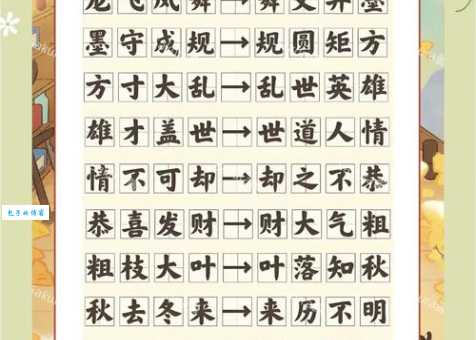 龙飞凤舞→舞文弄墨
墨守成规→规圆矩方
方寸大乱→乱世英雄
雄才盖世→世道人情
情不可却→却之不恭
恭喜发财→财大气粗
粗枝大叶→叶落知秋
秋去冬来→来历不明
包子的博客